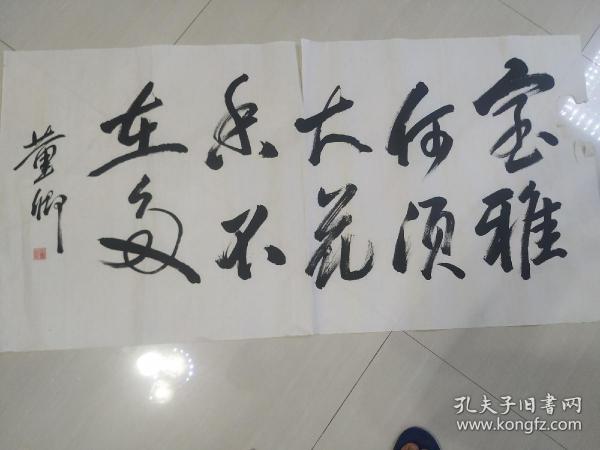 室雅
何须
大花
香不
在多
董卿
孔夫子旧书网
www.kongfz.com